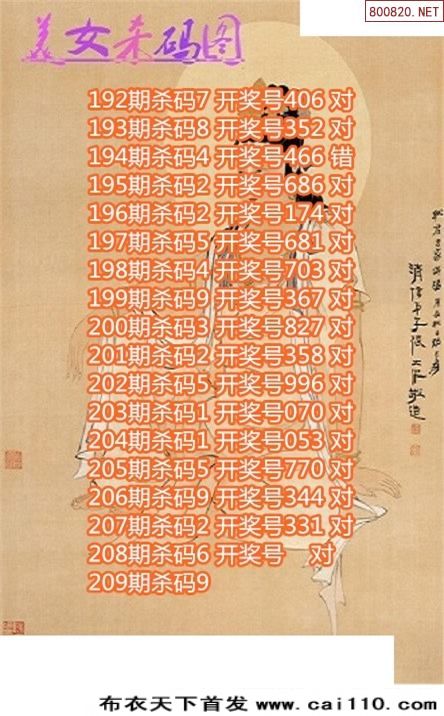 800820.NET
美女杀码图
192期杀码7 开奖号406 对
193期杀码8 开奖号352 对
194期杀码4 开奖号466 错
195期杀码2 开奖号686 对
196期杀码2 开奖号174 对
197期杀码5 开奖号681 对
198期杀码4 开奖号703 对
199期杀码9 开奖号367 对
200期杀码3 开奖号827 对
201期杀码2 开奖号358 对
202期杀码5 开奖号996 对
203期杀码1 开奖号070 对
204期杀码1 开奖号053 对
205期杀码5 开奖号770 对
206期杀码9 开奖号344 对
207期杀码2 开奖号331 对
208期杀码6 开奖号 对
209期杀码9
布衣天下首发 www.cai110.com